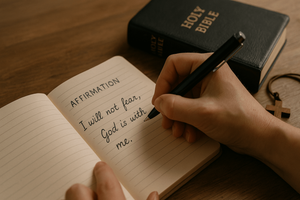 HOLY
BIBLE
AFFIRMATION
I will not fear,
God is with
me.